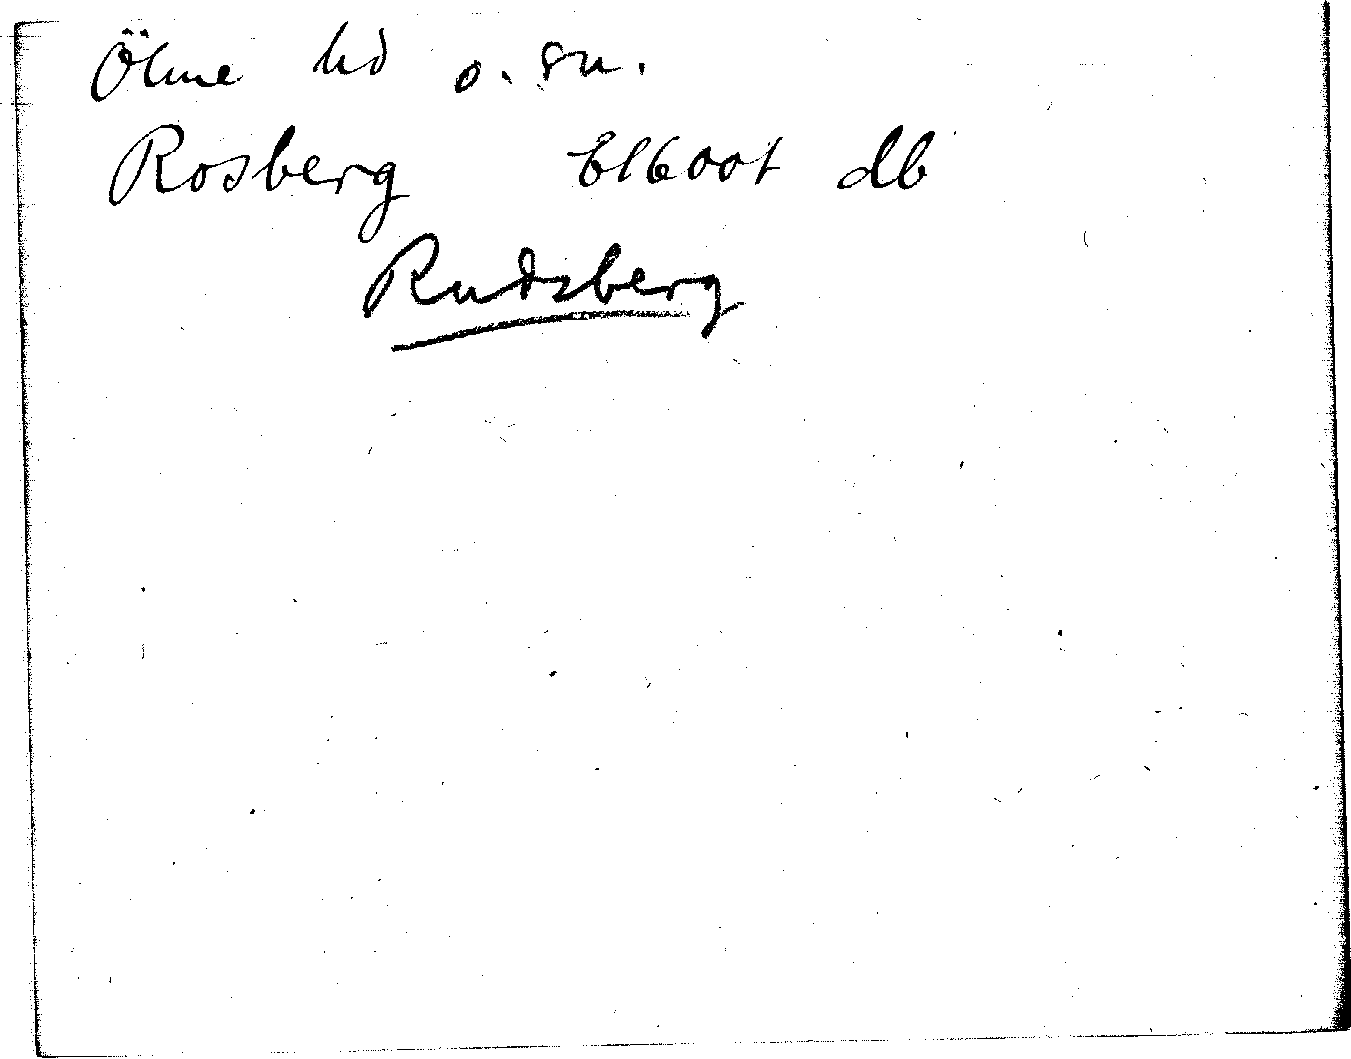 Ölme hd o. sn.
Rosberg db
Rudsberg